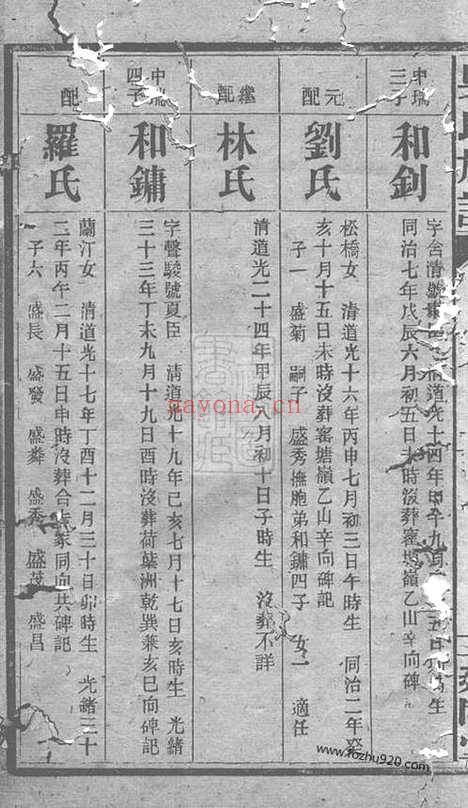 中瑞
三子
和釗
字舍清 清道光十四年甲午九月 五日 時生
同治七年戊辰六月初五日未時沒葬窰塘嶺乙山辛向碑
元
配
劉氏
松橋女 清道光十六年丙申七月初三日午時生 同治二年癸
亥十月十五日未時沒葬窰塘嶺乙山辛向碑記
子一 盛菊 嗣子 盛秀撫胞弟和鏞四子 女一 適任
繼
配
林氏
清道光二十四年甲辰八月初十日子時生 沒葬不詳
中瑞
四子
和鏞
字聲駿號夏臣 清道光十九年己亥七月十七日亥時生 光緒
三十三年丁未九月十九日酉時沒葬荷葉洲乾巽兼亥巳向碑記
配
羅氏
蘭汀女 清道光十七年丁酉十二月三十日卯時生 光緒三十
二年丙午二月十五日申時沒葬合 冢同向共碑記
子六 盛長 盛發 盛粦 盛秀 盛茂 盛昌
nayona.cn
www.fozhu920.com